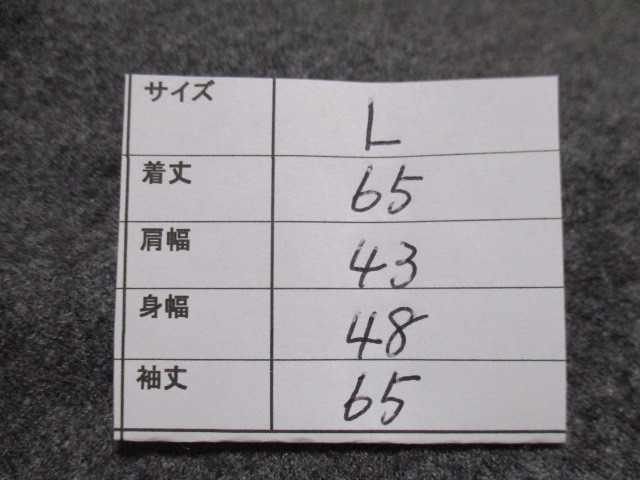 サイズ L
着丈 65
肩幅 43
身幅 48
袖丈 65